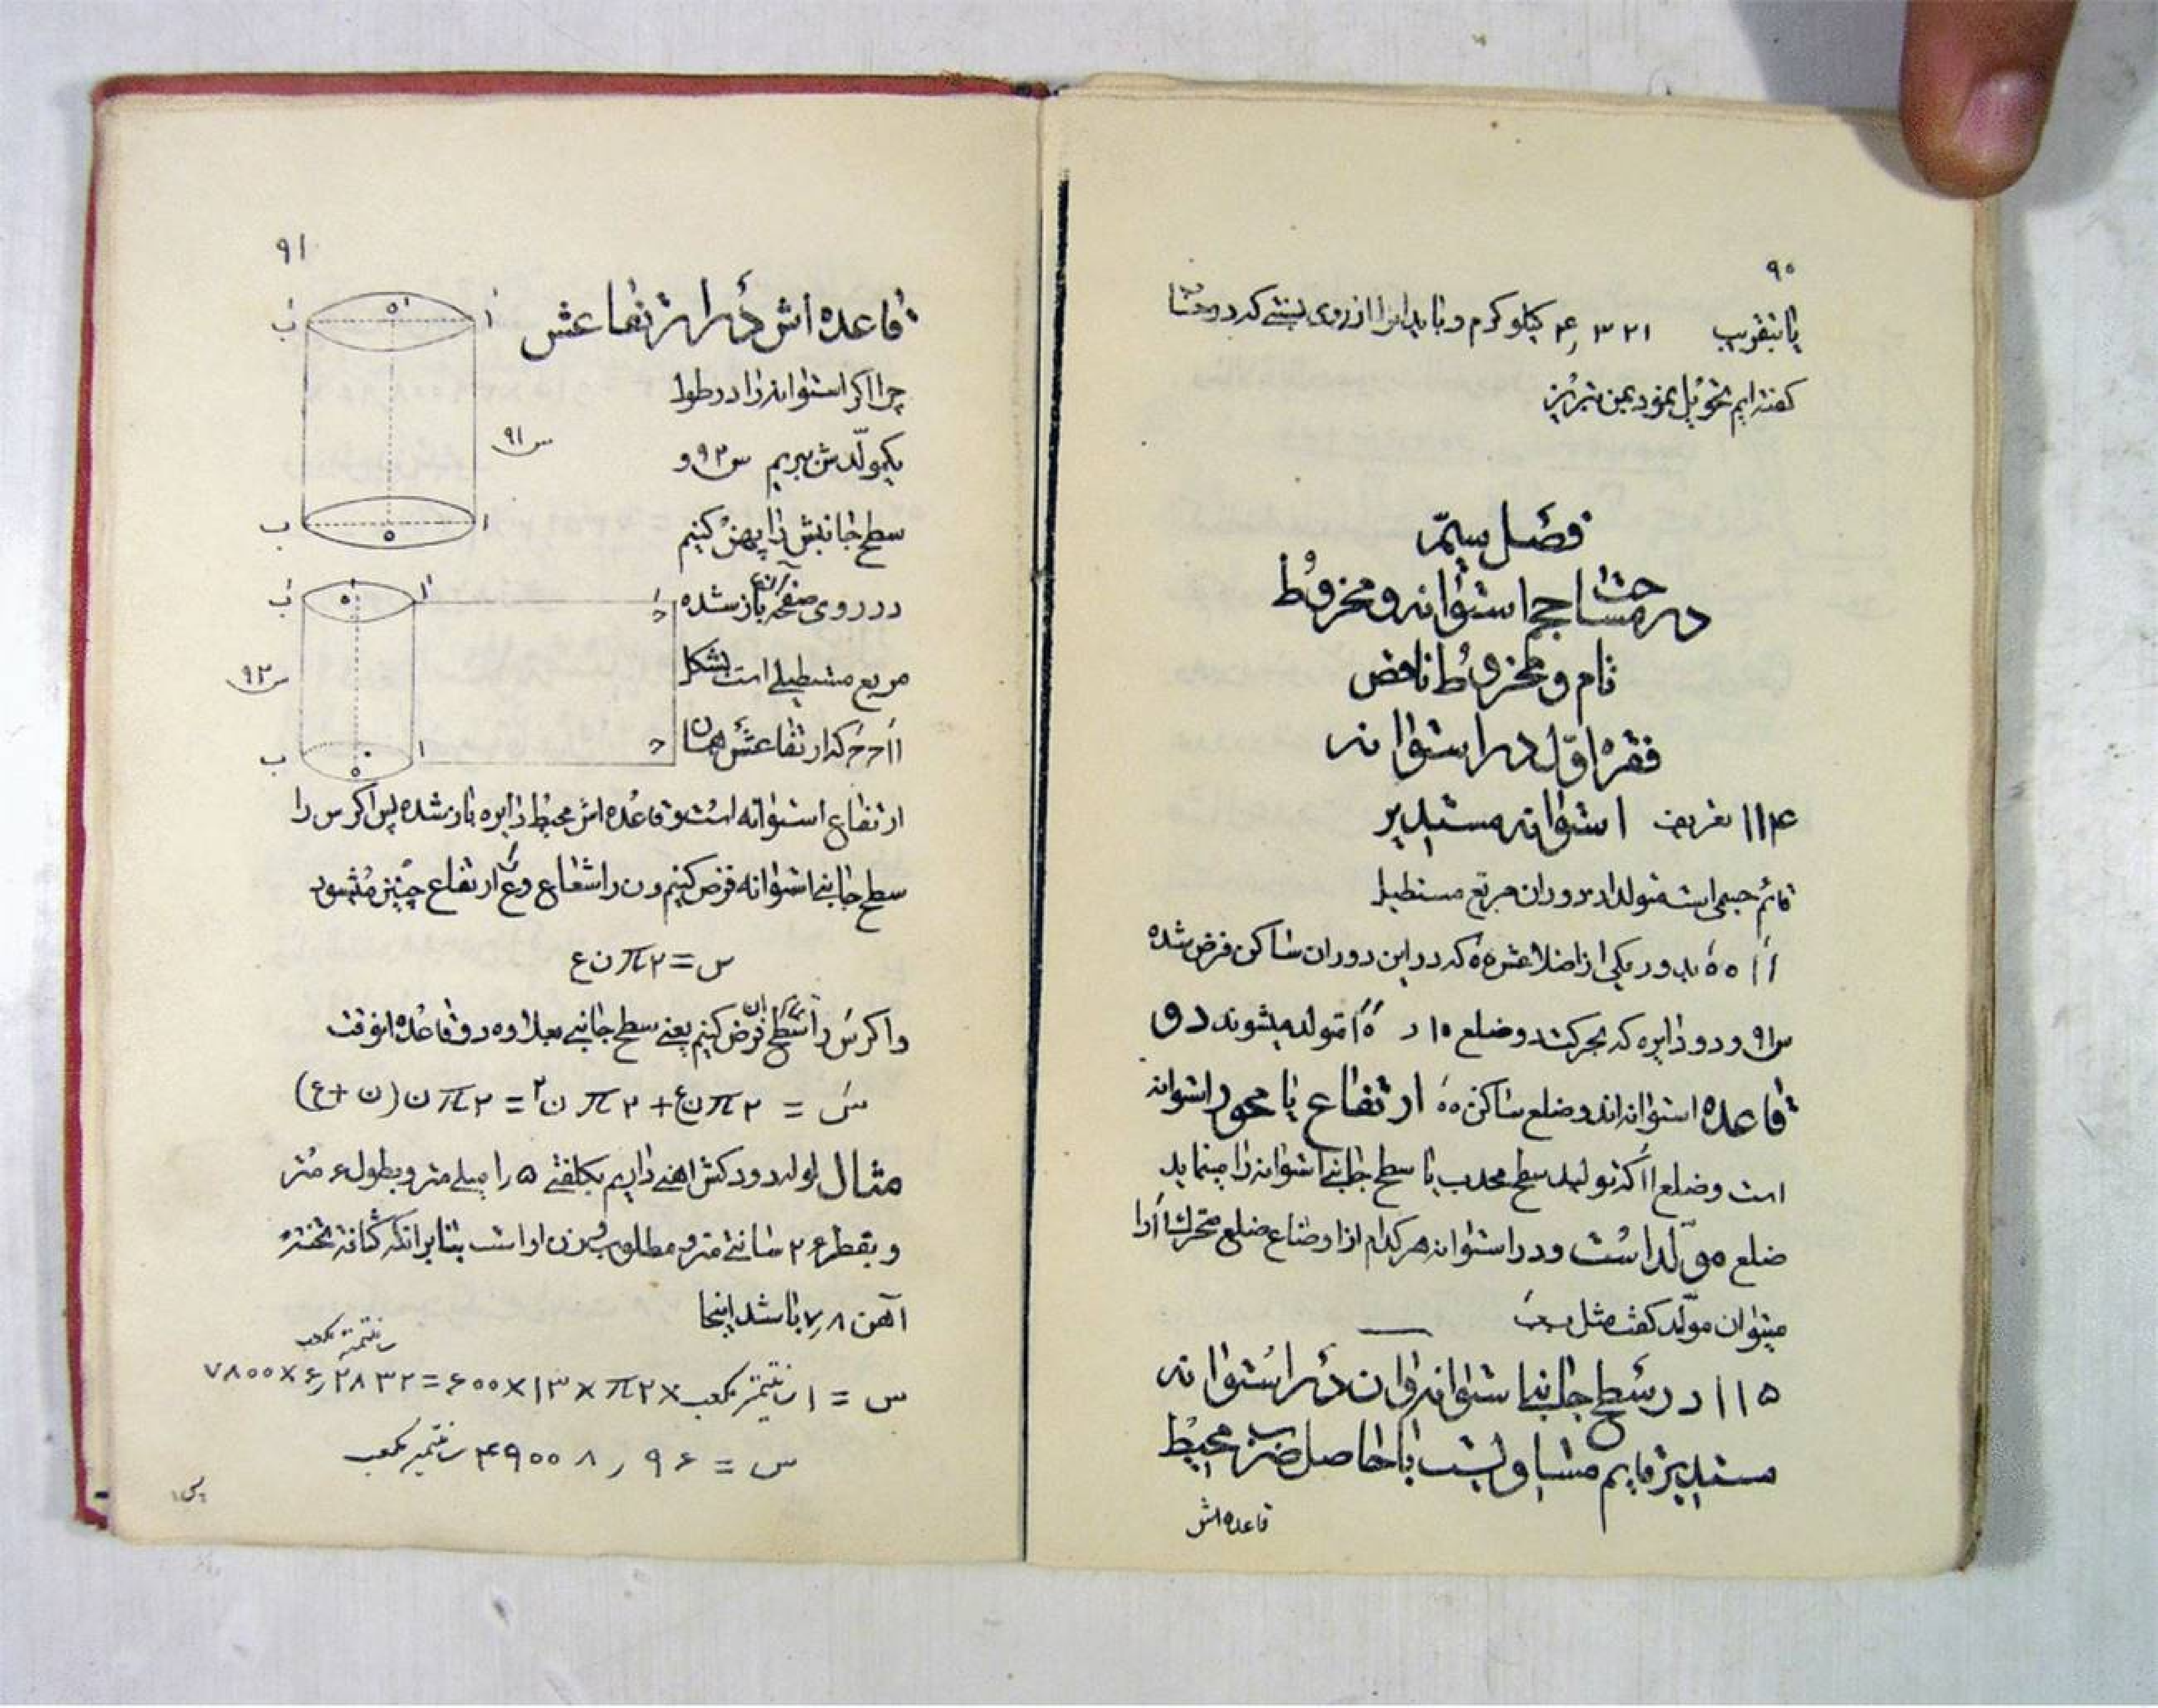 ۹۰
یا بتقریب ۴٫۳۲۱ کیلوگرم و باید اینرا از روی نسبتی که در حساب
گفته‌ایم تحویل نمود بمن تبریز
فصل سیّم
در مساحت حجم استوانه و مخروط
تام و مخروط ناقص
فقره اوّل در استوانه
۱۱۴ تعریف استوانه مستدیر
قائم جسمی است متولد از دوران مربع مستطیل
بدور یکی از اضلاعش که در این دوران ساکن فرض شده
س ۹۱ و دو دایره که بحرکت دو ضلع متولد میشوند دو
قاعده استوانه‌اند و ضلع ساکن ارتفاع یا محور استوانه
است و ضلع که تولید سطح محدب یا سطح جانبی استوانه را مینماید
ضلع مولّد است و در استوانه هر کدام از اوضاع ضلع متحرک را
میتوان مولّد گفت مثل
۱۱۵ در سطح جانبی استوانه در استوانه
مستدیر قایم مساویست با حاصل ضرب محیط
قاعده‌اش
۹۱
قاعده‌اش در ارتفاعش
چرا اگر استوانه را در طول
یکمولّدش ببریم س ۹۲ و
سطح جانبیش را پهن کنیم
در روی صفحه باز شده آن
مربع مستطیلی است بشکل
که ارتفاعش همان
ارتفاع استوانه است و قاعده‌اش محیط دایره باز شده پس اگر س را
سطح جانبی استوانه فرض کنیم و ن را شعاع و ع ارتفاع چنین میشود
س = ۲π ن ع
و اگر سَ را سطح تمام آن فرض کنیم یعنی سطح جانبی بعلاوه دو قاعده آنوقت
سَ = ۲π ن ع + ۲π ن۲ = ۲π ن (ن + ع)
مثال لوله دودکش آهنی داریم بکلفتی ۵ را میلیمتر و بطول ۶ متر
و بقطر ۲۶ سانتیمتر و مطلوب وزن او است بنابرانکه کثافت تخته
آهن ۷٫۸ باشد اینجا
س = ۱ سانتیمتر مکعب × ۲π × ۱۳ × ۶۰۰ = ۶٫۲۸۳۲ × ۷۸۰۰ سانتیمتر مکعب
س = ۴۹۰۰۸٫۹۶ سانتیمتر مکعب
پس
ا
ب
ه
س ۹۱
س ۹۲